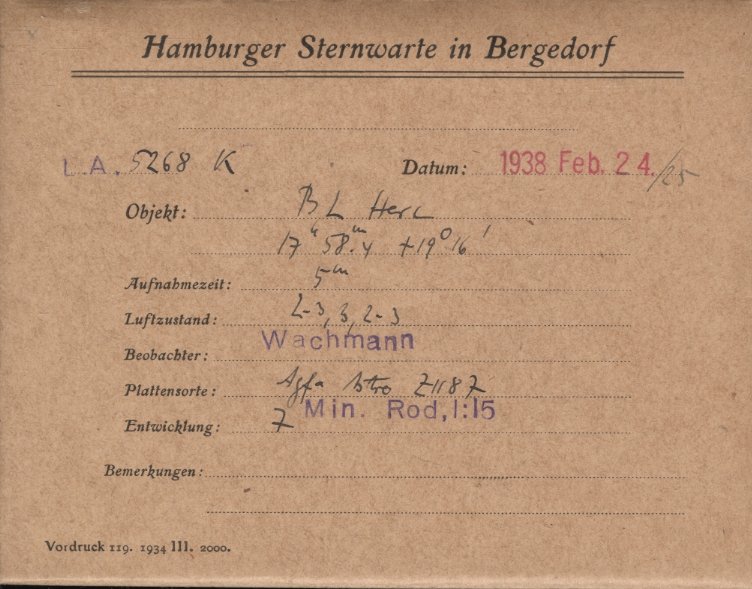 Hamburger Sternwarte in Bergedorf
L.A. 5268 K Datum: 1938 Feb. 24./25
Objekt: BL Herc
17ʰ 58ᵐ.4 +19° 16'
Aufnahmezeit: 5ᵐ
Luftzustand: 2-3, 3, 2-3
Beobachter: Wachmann
Plattensorte: Agfa Astro Z1187
Entwicklung: 7 Min. Rod, 1:15
Bemerkungen:
Vordruck 119. 1934 III. 2000.